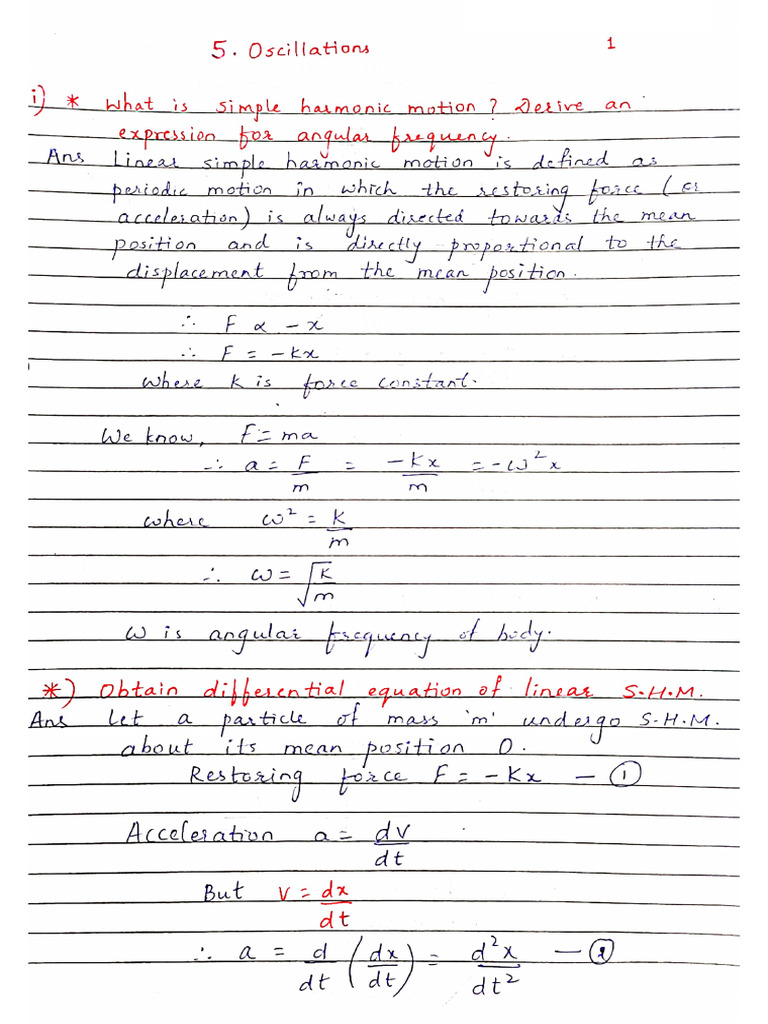 5. Oscillations 1
i) * What is simple harmonic motion? Derive an
expression for angular frequency.
Ans Linear simple harmonic motion is defined as
periodic motion in which the restoring force (or
acceleration) is always directed towards the mean
position and is directly proportional to the
displacement from the mean position.
∴ F ∝ -x
∴ F = -Kx
Where K is force constant.
We know, F = ma
∴ a = F/m = -Kx/m = -ω²x
where ω² = K/m
∴ ω = √K/√m
ω is angular frequency of body.
*) Obtain differential equation of linear S.H.M.
Ans Let a particle of mass 'm' undergo S.H.M.
about its mean position O.
Restoring force F = -Kx — ①
Acceleration a = dv/dt
But v = dx/dt
∴ a = d/dt (dx/dt) = d²x/dt² — ②